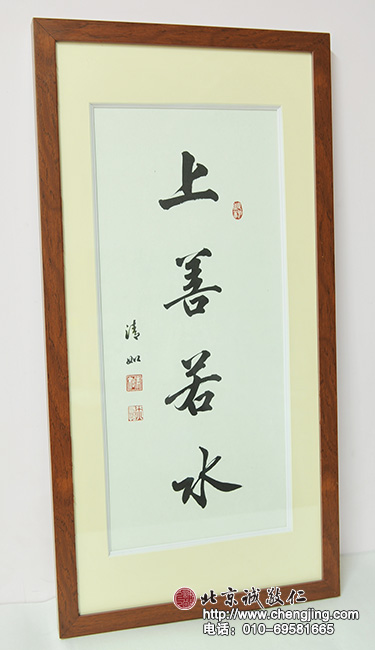 上善若水
清如
北京诚敬仁
www.chengjing.com
电话：010-69581665